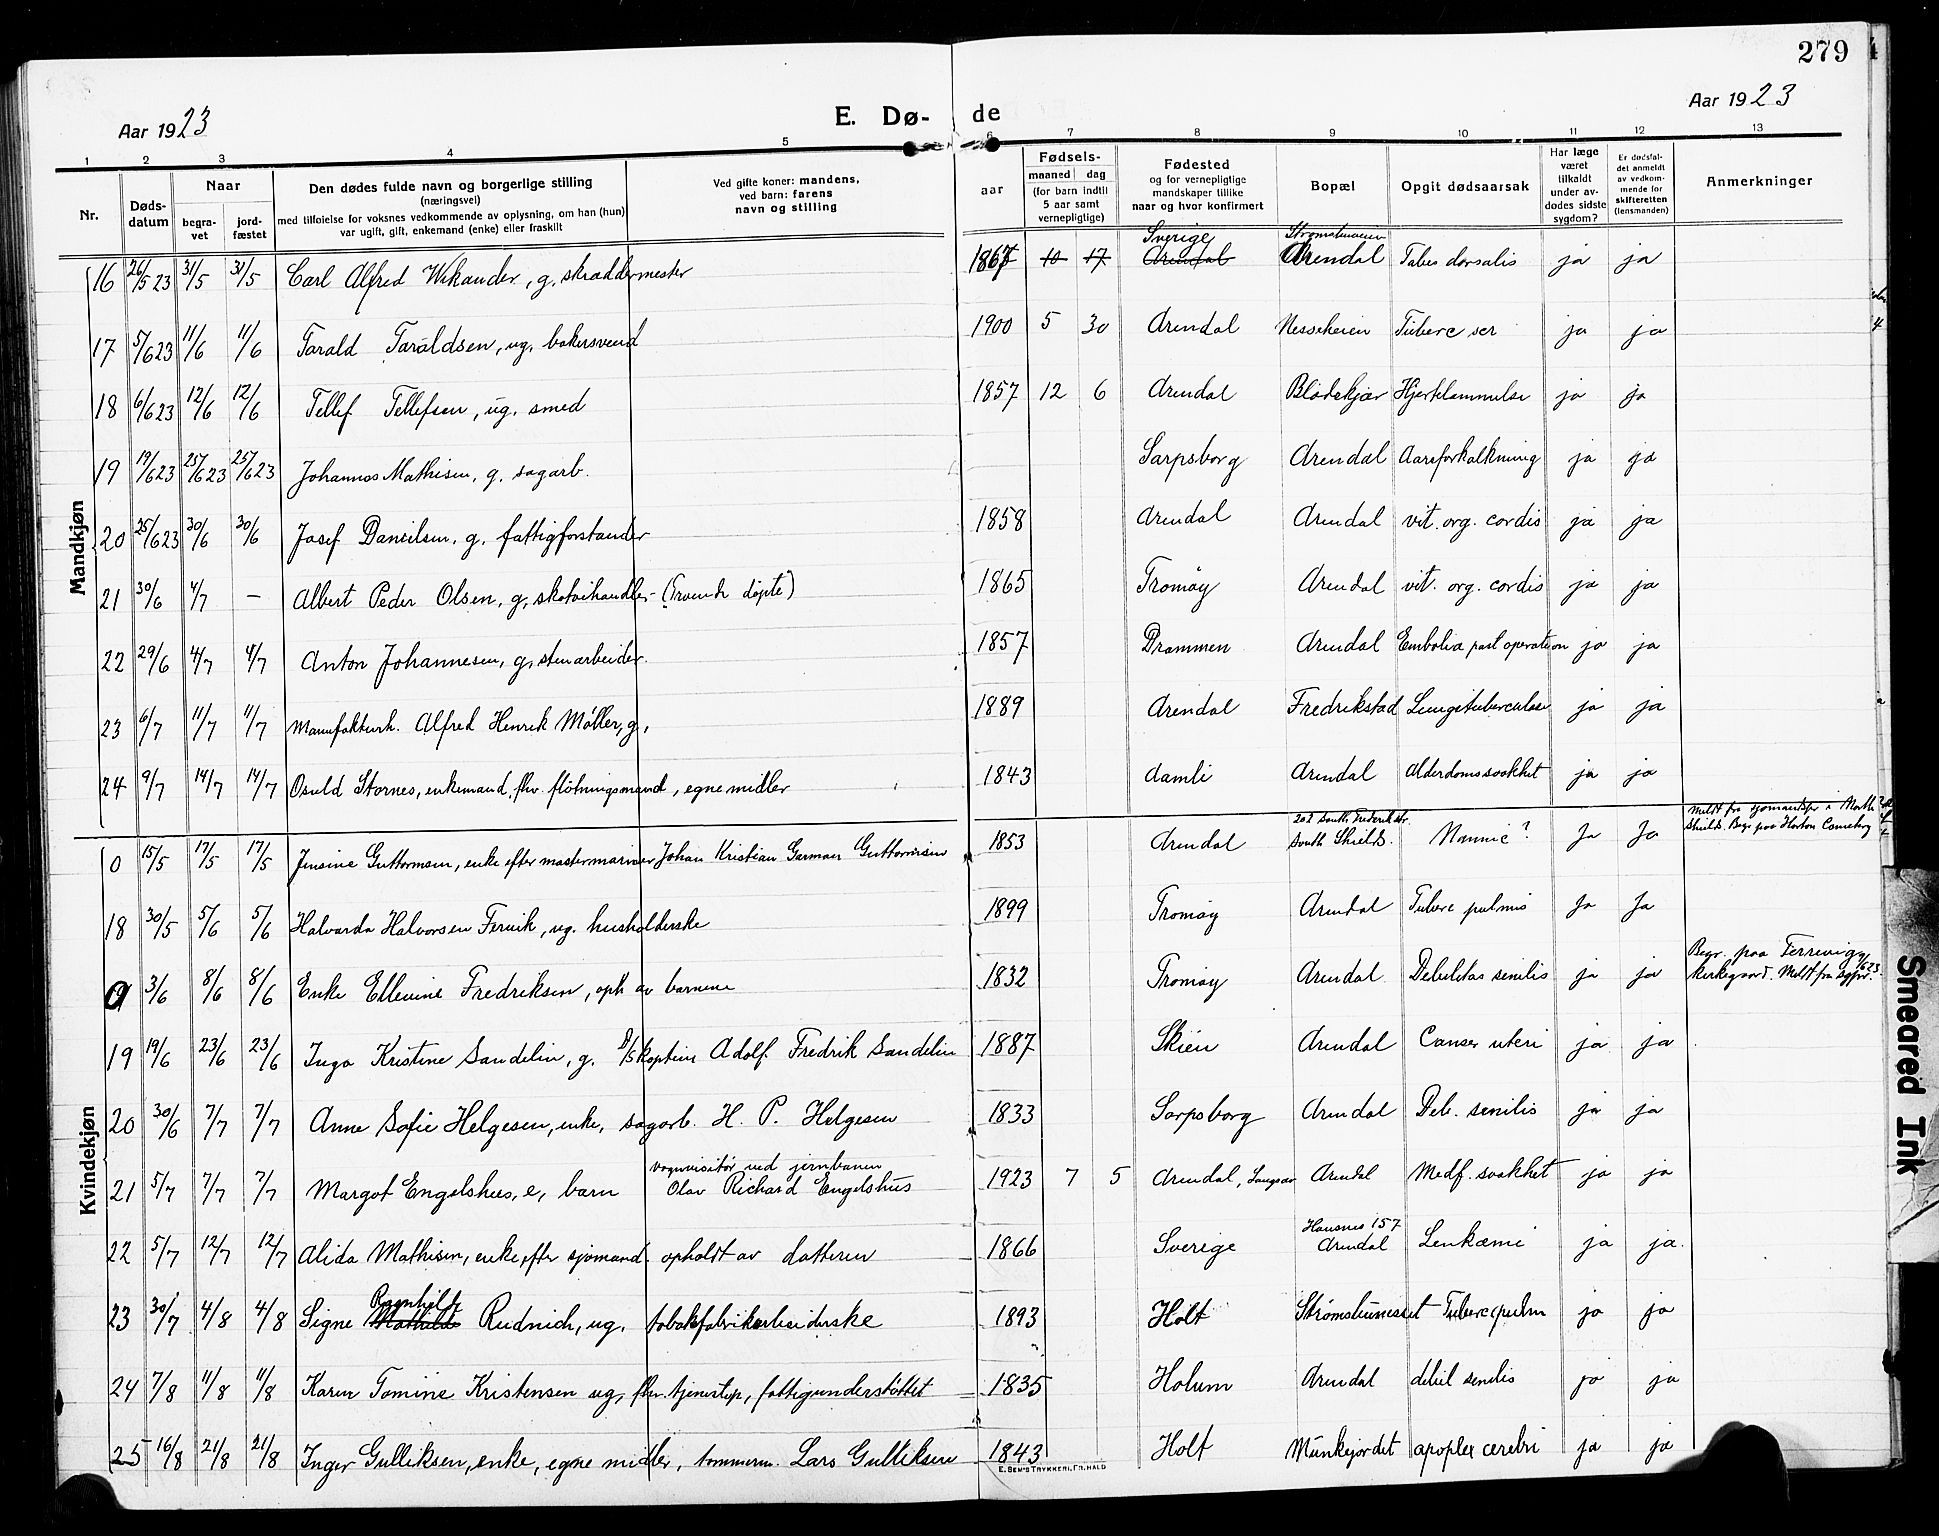 279
Aar 1923
E. Dø- de
Aar 1923
1 2 3 4 5 6 7 8 9 10 11 12 13
Nr.
Døds-
datum
Naar
begra-
vet
jord-
fæstet
Den dødes fulde navn og borgerlige stilling
(næringsvei)
med tilføielse for voksnes vedkommende av oplysning, om han (hun)
var ugift, gift, enkemand (enke) eller fraskilt
Ved gifte koner: mandens,
ved barn: farens
navn og stilling
aar
Fødsels-
maaned dag
(for barn indtil
5 aar samt
vernepligtige)
Fødested
og for vernepligtige
mandskaper tillike
naar og hvor konfirmert
Bopæl
Opgit dødsaarsak
Har læge
været
tilkaldt
under av-
dødes sidste
sygdom?
Er dødsfal-
det anmeldt
av vedkom-
mende for
skifteretten
(lensmanden)
Anmerkninger
Mandkjøn
Sverige
16 26/5 23 31/5 31/5 Carl Alfred Wikander, g, skræddermester 1867 10 17 Arendal Arendal Tabes dorsalis ja ja
17 5/6 23 11/6 11/6 Tarald Taraldsen, ug, bakersvend 1900 5 30 Arendal Nesseheien Tuberc ser ja ja
18 6/6 23 12/6 12/6 Tellef Tellefsen, ug. smed 1857 12 6 Arendal Blødekjær Hjertelammelse ja ja
19 19/6 23 25/6 23 25/6 23 Johannes Mathisen, g. sagarb. Sarpsborg Arendal Aareforkalkning ja ja
20 25/6 23 30/6 30/6 Josef Danielsen, g. fattigforstander 1858 Arendal Arendal vit. org. cordis ja ja
21 30/6 4/7 — Albert Peder Olsen, g, skotøihandler (Troende døpte) 1865 Tromøy Arendal vit. org. cordis ja ja
22 29/6 4/7 4/7 Anton Johannesen, g, stenarbeider. 1857 Drammen Arendal Embolia post operation ja ja
23 6/7 11/7 11/7 Manufakturh. Alfred Henrik Møller, g, 1889 Arendal Fredrikstad Lungetuberculose ja ja
24 9/7 14/7 14/7 Osuld Stornes, enkemand, fhv. fløtningsmand, egne midler 1843 Aamli Arendal Alderdomssvakhet ja ja
Kvindekjøn
202 South Frederik str. Meldt fra sjømandspr i North
0 15/5 17/5 17/5 Jensine Guttormsen, enke efter mastermariner Johan Kristian Garman Guttormsen 1853 Arendal South Shields. ? Ja Ja Shields. Begr paa Horton Cemetery
18 30/5 5/6 5/6 Halvarda Halvorsen Fervik, ug. husholderske 1899 Tromøy Arendal Tuberc pulmis Ja Ja
Begr. paa Færevig
0 3/6 8/6 8/6 Enke Ellevine Fredriksen, oph av barnene 1832 Tromøy Arendal Debilitas senilis ja ja kirkegaard. Meldt fra sgpr.
19 19/6 23/6 23/6 Inga Kristine Sandelin, g. D/S kaptein Adolf Fredrik Sandelin 1887 Skien Arendal Cancer uteri ja ja
20 30/6 7/7 7/7 Anne Sofie Helgesen, enke, sagarb. H. P. Helgesen 1833 Sarpsborg Arendal Deb. senilis ja ja
vognvisitør ved jernbanen
21 5/7 7/7 7/7 Margot Engelshus, e, barn Olav Richard Engelshus 1923 7 5 Arendal, Langsæ Arendal Medf. svakhet ja ja
Havsnes 157
22 5/7 12/7 12/7 Alida Mathisen, enke efter sjømand. opholdt av datteren 1866 Sverige Arendal Leukæmi ja ja.
Ragnhild
23 30/7 4/8 4/8 Signe Mathilde Rudnich, ug. tobakfabrikarbeiderske 1893 Holt Strømsbunesset Tuberc pulm ja ja
24 7/8 11/8 11/8 Karen Tomine Kristensen ug, fhv. tjenestep, fattigunderstøttet 1835 Holum Arendal debil senilis ja ja
25 16/8 21/8 21/8 Inger Gulliksen, enke, egne midler, tømmerm. Lars Gulliksen 1843 Holt Munkejordet apoplex cerebri ja ja
E. SEM'S TRYKKERI, FR.HALD
Smeared Ink